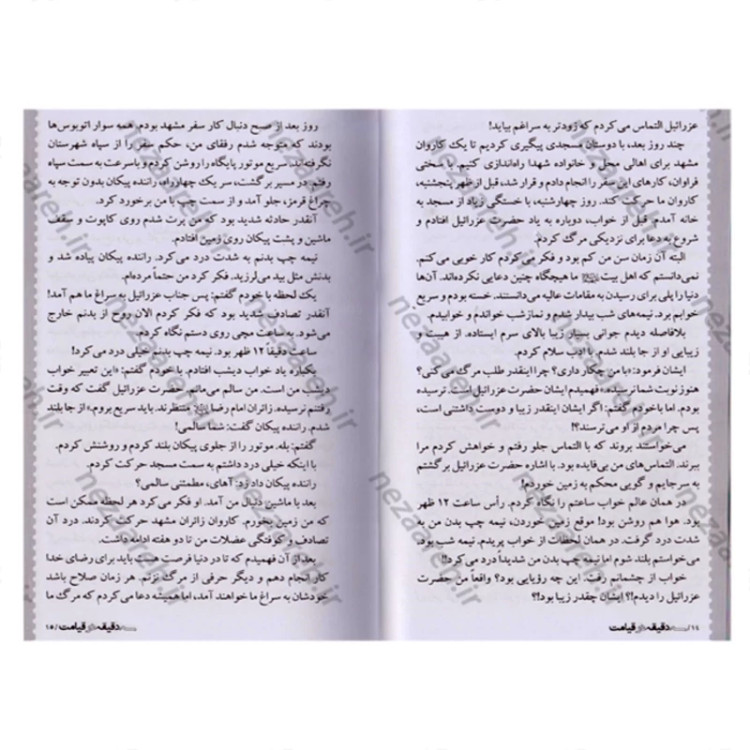 عزرائیل التماس می‌کردم که زودتر به سراغم بیاید!
چند روز بعد، با دوستان مسجدی پیگیری کردیم تا یک کاروان
مشهد برای اهالی محل و خانواده شهدا راه‌اندازی کنیم. با سختی
فراوان، کارهای این سفر را انجام دادم و قرار شد، قبل از ظهر پنجشنبه،
کاروان ما حرکت کند. روز چهارشنبه، با خستگی زیاد از مسجد به
خانه آمدم. قبل از خواب، دوباره به یاد حضرت عزرائیل افتادم و
شروع به دعا برای نزدیکی مرگ کردم.
البته آن زمان سن من کم بود و فکر می‌کردم کار خوبی می‌کنم.
نمی‌دانستم که اهل بیت ما هیچگاه چنین دعایی نکرده‌اند. آن‌ها
دنیا را پلی برای رسیدن به مقامات عالیه می‌دانستند. خسته بودم و سریع
خوابم برد. نیمه‌های شب بیدار شدم و نماز شب خواندم و خوابیدم.
بلافاصله دیدم جوانی بسیار زیبا بالای سرم ایستاده. از هیبت و
زیبایی او از جا بلند شدم. با ادب سلام کردم.
ایشان فرمود: «با من چکار داری؟ چرا اینقدر طلب مرگ می‌کنی؟
هنوز نوبت شما نرسیده.» فهمیدم ایشان حضرت عزرائیل است. ترسیده
بودم. اما باخودم گفتم: اگر ایشان اینقدر زیبا و دوست داشتنی است،
پس چرا مردم از او می‌ترسند؟!
می‌خواستند بروند که با التماس جلو رفتم و خواهش کردم مرا
ببرند. التماس‌های من بی‌فایده بود. با اشاره حضرت عزرائیل برگشتم
به سرجایم و گویی محکم به زمین خوردم!
در همان عالم خواب ساعتم را نگاه کردم. رأس ساعت ۱۲ ظهر
بود. هوا هم روشن بود! موقع زمین خوردن، نیمه چپ بدن من به
شدت درد گرفت. در همان لحظات از خواب پریدم. نیمه شب بود.
می‌خواستم بلند شوم اما نیمه چپ بدن من شدیداً درد می‌کرد!!
خواب از چشمانم رفت. این چه رؤیایی بود؟ واقعاً من حضرت
عزرائیل را دیدم!؟ ایشان چقدر زیبا بود!؟
۱۴/ سه دقیقه در قیامت
روز بعد از صبح دنبال کار سفر مشهد بودم. همه سوار اتوبوس‌ها
بودند که متوجه شدم رفقای من، حکم سفر را از سپاه شهرستان
نگرفته‌اند. سریع موتور پایگاه را روشن کردم و باسرعت به سمت سپاه
رفتم. در مسیر برگشت، سر یک چهارراه، راننده پیکان بدون توجه به
چراغ قرمز، جلو آمد و از سمت چپ با من برخورد کرد.
آنقدر حادثه شدید بود که من پرت شدم روی کاپوت و سقف
ماشین و پشت پیکان روی زمین افتادم.
نیمه چپ بدنم به شدت درد می‌کرد. راننده پیکان پیاده شد و
بدنش مثل بید می‌لرزید. فکر کرد من حتماً مرده‌ام.
یک لحظه با خودم گفتم: پس جناب عزرائیل به سراغ ما هم آمد!
آنقدر تصادف شدید بود که فکر کردم الان روح از بدنم خارج
می‌شود. به ساعت مچی روی دستم نگاه کردم.
ساعت دقیقا ۱۲ ظهر بود. نیمه چپ بدنم خیلی درد می‌کرد!
یکباره یاد خواب دیشب افتادم. با خودم گفتم: «این تعبیر خواب
دیشب من است. من سالم می‌مانم. حضرت عزرائیل گفت که وقت
رفتنم نرسیده. زائران امام رضا منتظرند. باید سریع بروم.» از جا بلند
شدم. راننده پیکان گفت: شما سالمی!
گفتم: بله. موتور را از جلوی پیکان بلند کردم و روشنش کردم.
با اینکه خیلی درد داشتم به سمت مسجد حرکت کردم.
راننده پیکان داد زد: آهای، مطمئنی سالمی؟
بعد با ماشین دنبال من آمد. او فکر می‌کرد هر لحظه ممکن است
که من زمین بخورم. کاروان زائران مشهد حرکت کردند. درد آن
تصادف و کوفتگی عضلات من تا دو هفته ادامه داشت.
بعد از آن فهمیدم که تا در دنیا فرصت هست باید برای رضای خدا
کار انجام دهم و دیگر حرفی از مرگ نزنم. هر زمان صلاح باشد
خودشان به سراغ ما خواهند آمد، اما همیشه دعا می‌کردم که مرگ ما
سه دقیقه در قیامت /۱۵
nezaareh.ir